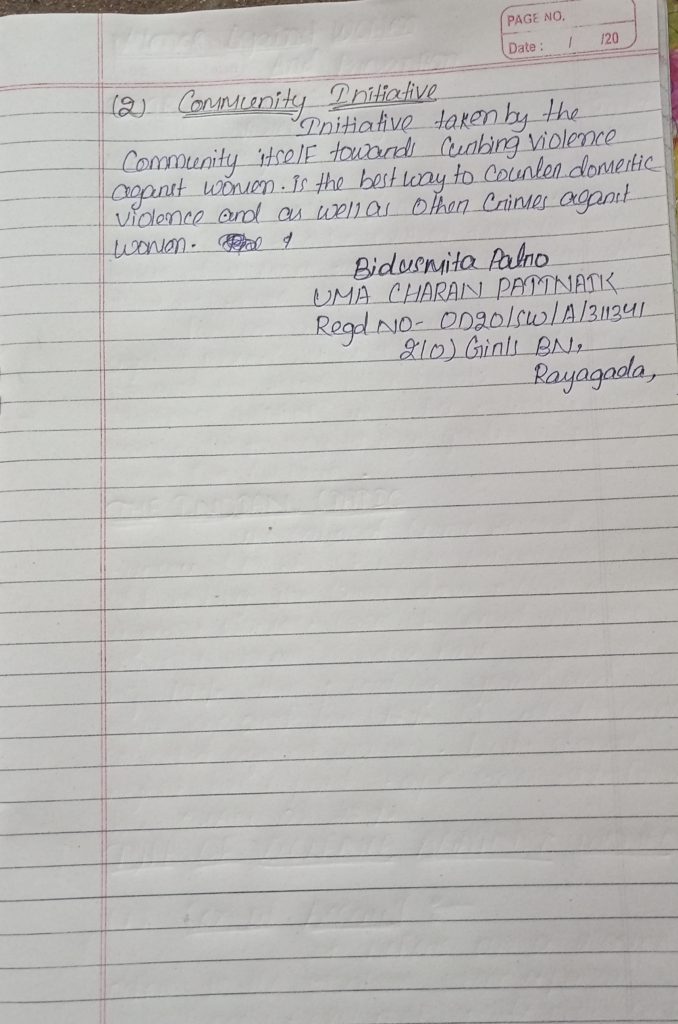 PAGE NO.
Date : / /20
(2) Community Initiative
Initiative taken by the
Community itself towards Curbing violence
aganist women. is the best way to counter domestic
violence and as well as other Crimes aganist
women.
Bidusmita Palno
UMA CHARAN PATTNAIK
Regd NO- OD20/SW/A/311341
2(O) Girls BN,
Rayagada,